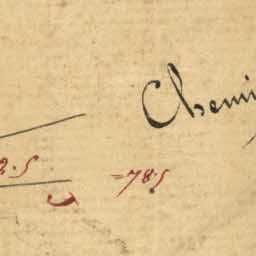 Chemi
2.5 =78.5